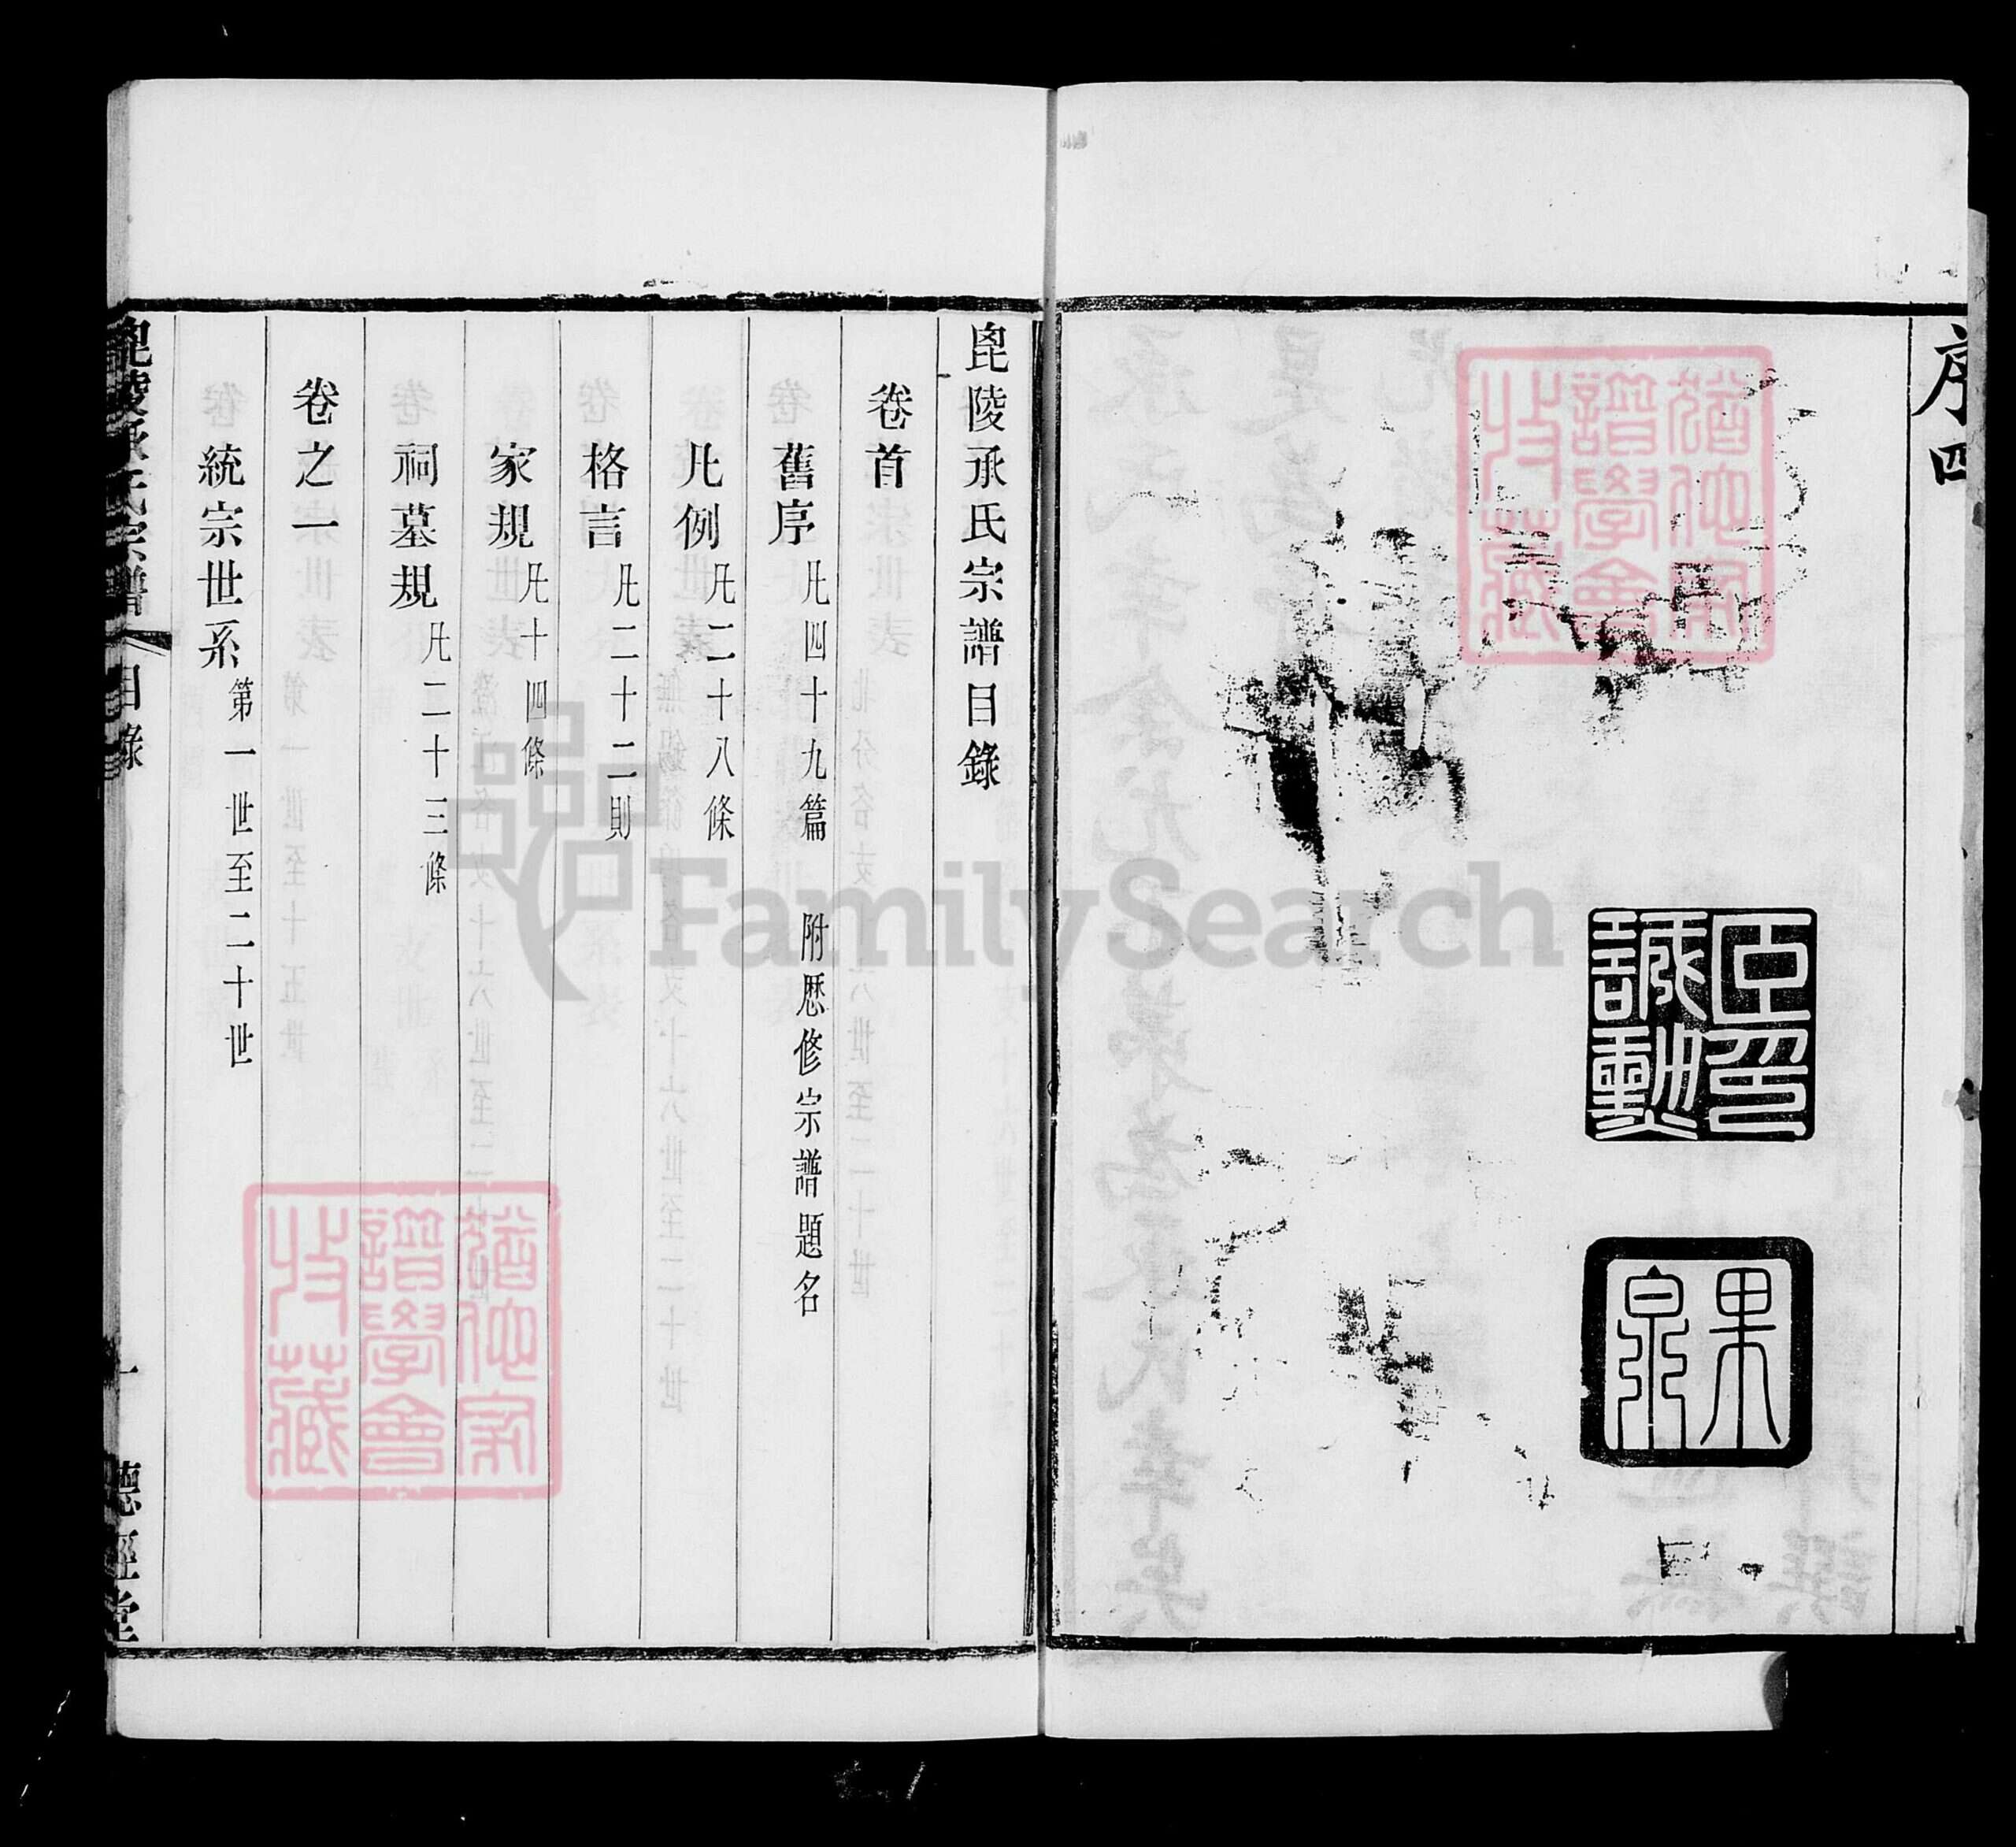 序四
臣印誠勳
果泉
猶他家譜學會收藏
毘陵承氏宗譜目錄
卷首
舊序 凡四十九篇 附歷修宗譜題名
凡例 凡二十八條
格言 凡二十二則
家規 凡十四條
祠墓規 凡二十三條
卷之一
統宗世系 第一世至二十世
毘陵承氏宗譜 目錄 一 德經堂
猶他家譜學會收藏
FamilySearch